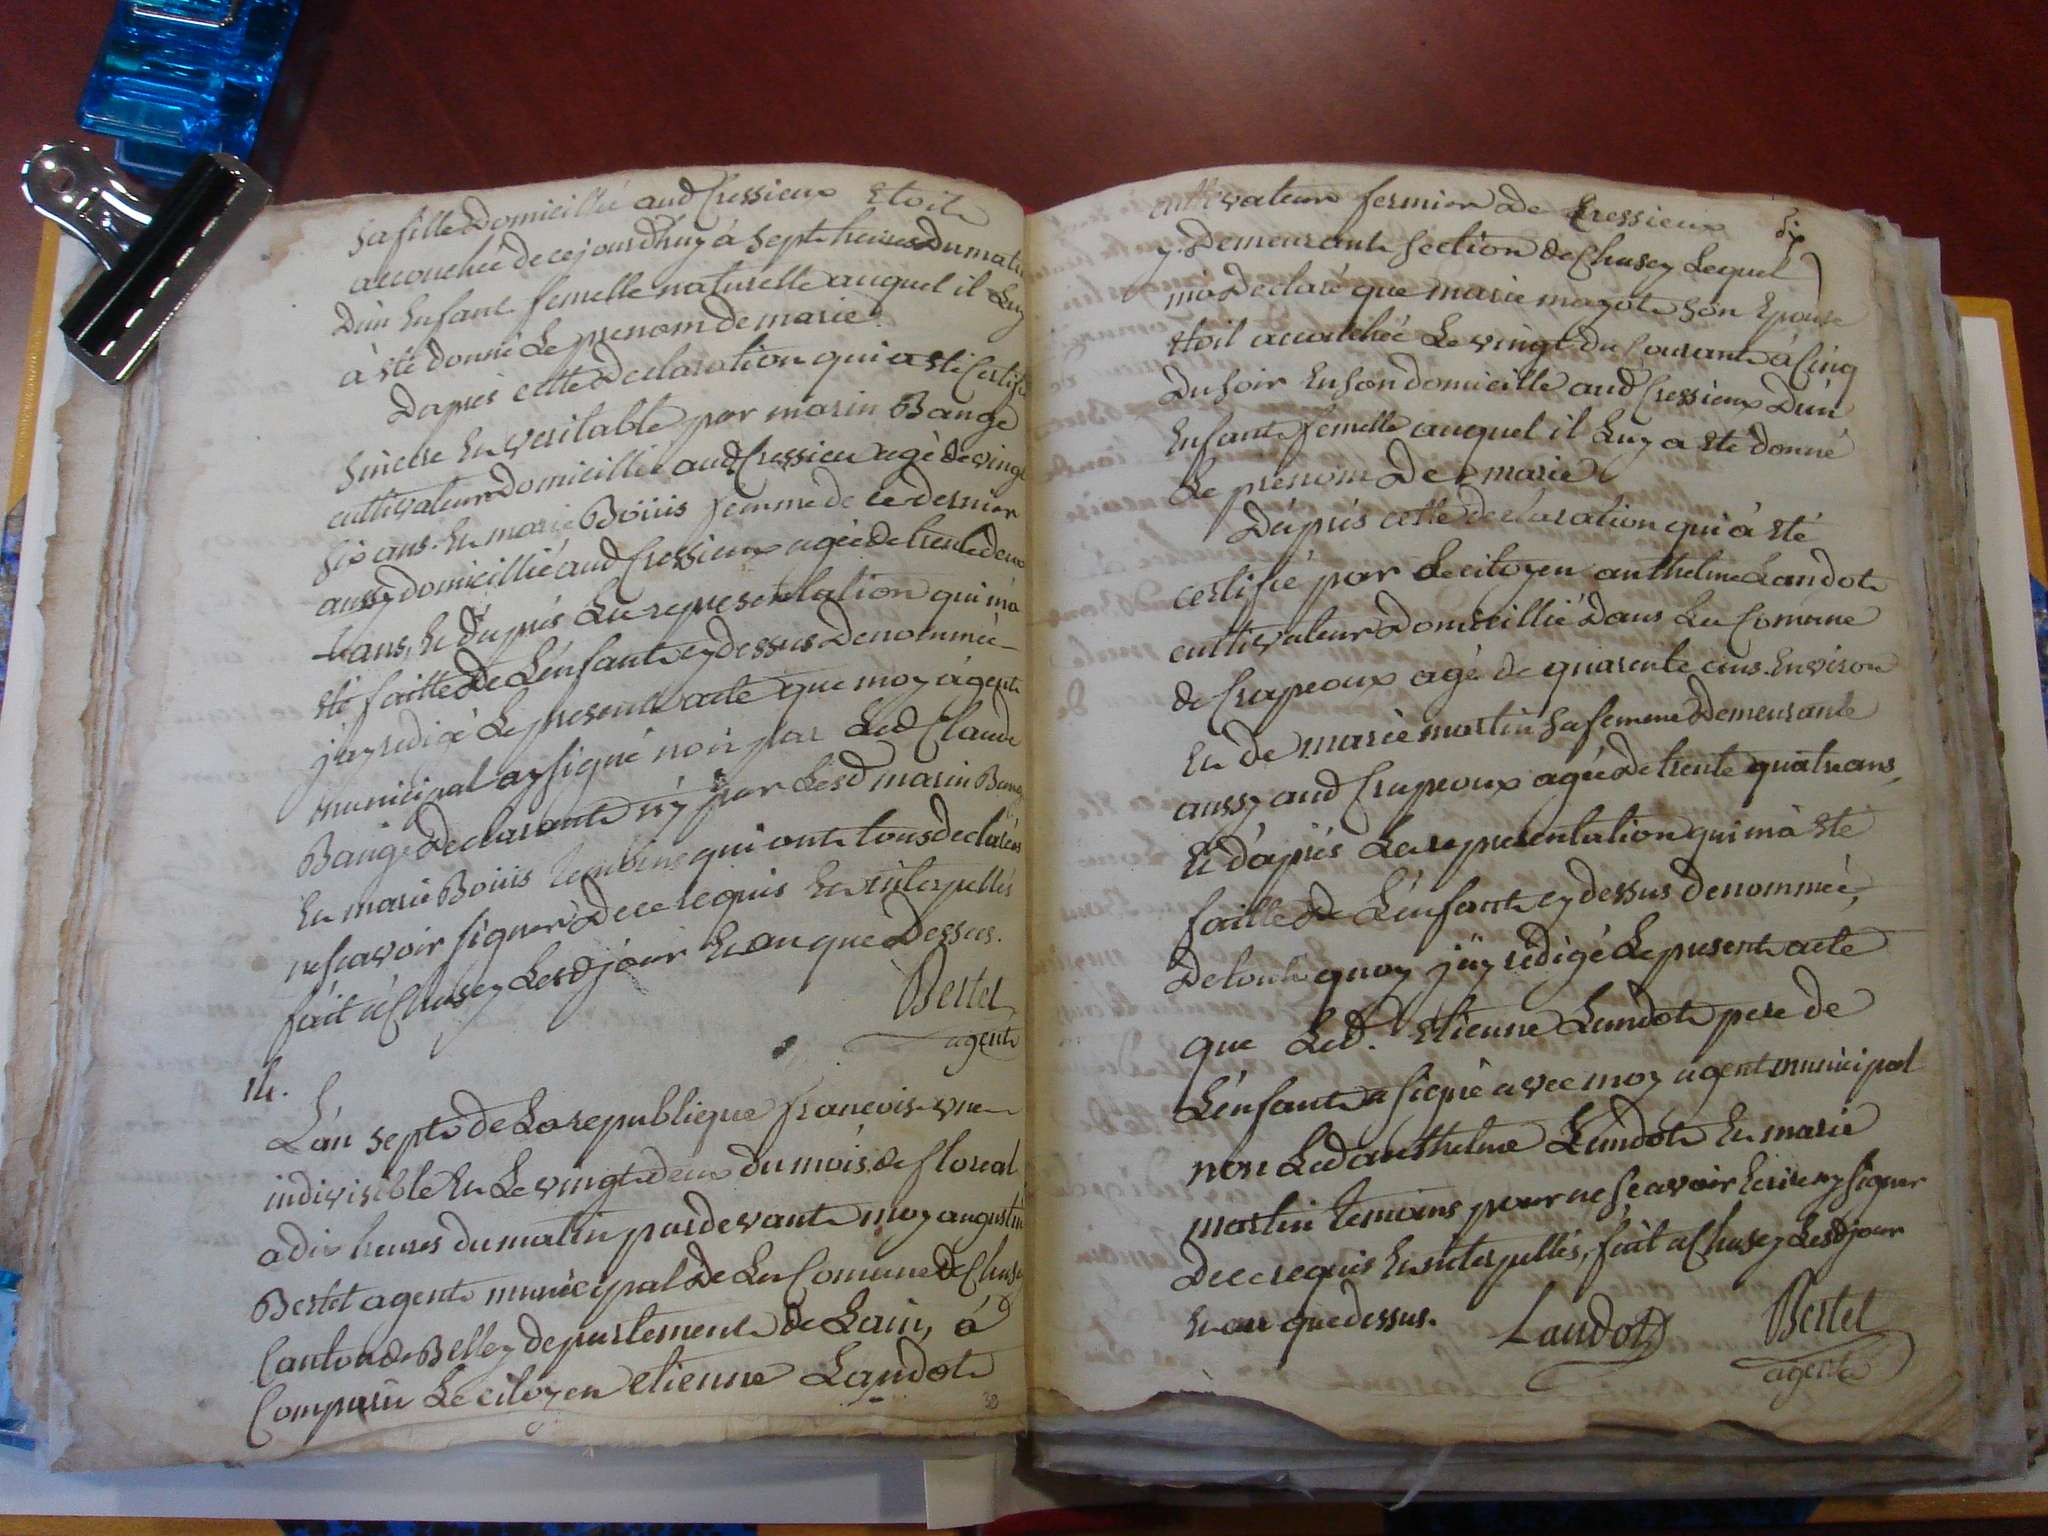 Sa fille Domicillié aud Cressieux Etoit
accouchée de cejourdhuy à Septheures Dumatin
Dun Enfant femelle naturelle auquel il Luy
à Eté donné Le prenom De marie
Dapres cette Declaration qui a Eté Certifié
Sincere En veritable par marin Bange
cultivateur Domicillié aud Cressieu agé de vingt
Six ans. En marie Boüis femme de ce dernier
aussy domicillié aud Cressieux agée de trente deux
ans, Et D'apres La representation qui m'a
Eté faitte De L'enfant cy dessus Denommée
j'ay redigé Le present acte que moy agent
municipal ay signé non par Led Claude
Bange Declarant n'y par Lesd marin Bange
En marie Boüis temoins qui ont tous declarés
ne scavoir signer De ce requis En interpellés
fait à Chusey Lesd jour En an que Dessus.
Bertet
agent
14.
L'an Sept de La republique francoise une
indivisible En Le vingt deux du mois de floreal
a dix heures du matin pardevant moy augustin
Bertet agent municipal De La Comune De Chusey
Canton de Belley departement de Lain, à
Comparu Le citoyen etienne Landot
cultivateur fermier de Cressieux
dix
y. Demeurant Section de Chusey Lequel
m'a Declaré que marie mayot Son Epouse
Etoit accouchée Le vingt du Courant à Cinq
Du Soir En Son domicille aud Cressieux D'un
Enfant femelle auquel il Luy a Eté donné
Le prenom De marie
D'aprés cette declaration qui à Eté
certifié par Le citoyen anthelme Landot
cultivateur Domicillié Dans La Comune
de Crapeoux agé de quarente ans. Environ
En De marie martin Sa femme Demeurante
aussy aud Crapeoux agée De trente quatre ans,
Et D'aprés La representation qui m'à Eté
faitte De L'enfant cy dessus denommée,
De tout quoy j'ay redigé Le present acte
que Led. Etienne Landot pere de
L'enfant a signé avec moy agent municipal
non Led anthelme Landot En marie
martin temoins pour ne scavoir Ecrire ny signer
De ce requis En interpellés, fait a Chusey Lesd jour
En an que dessus.
Landot Bertet
agent